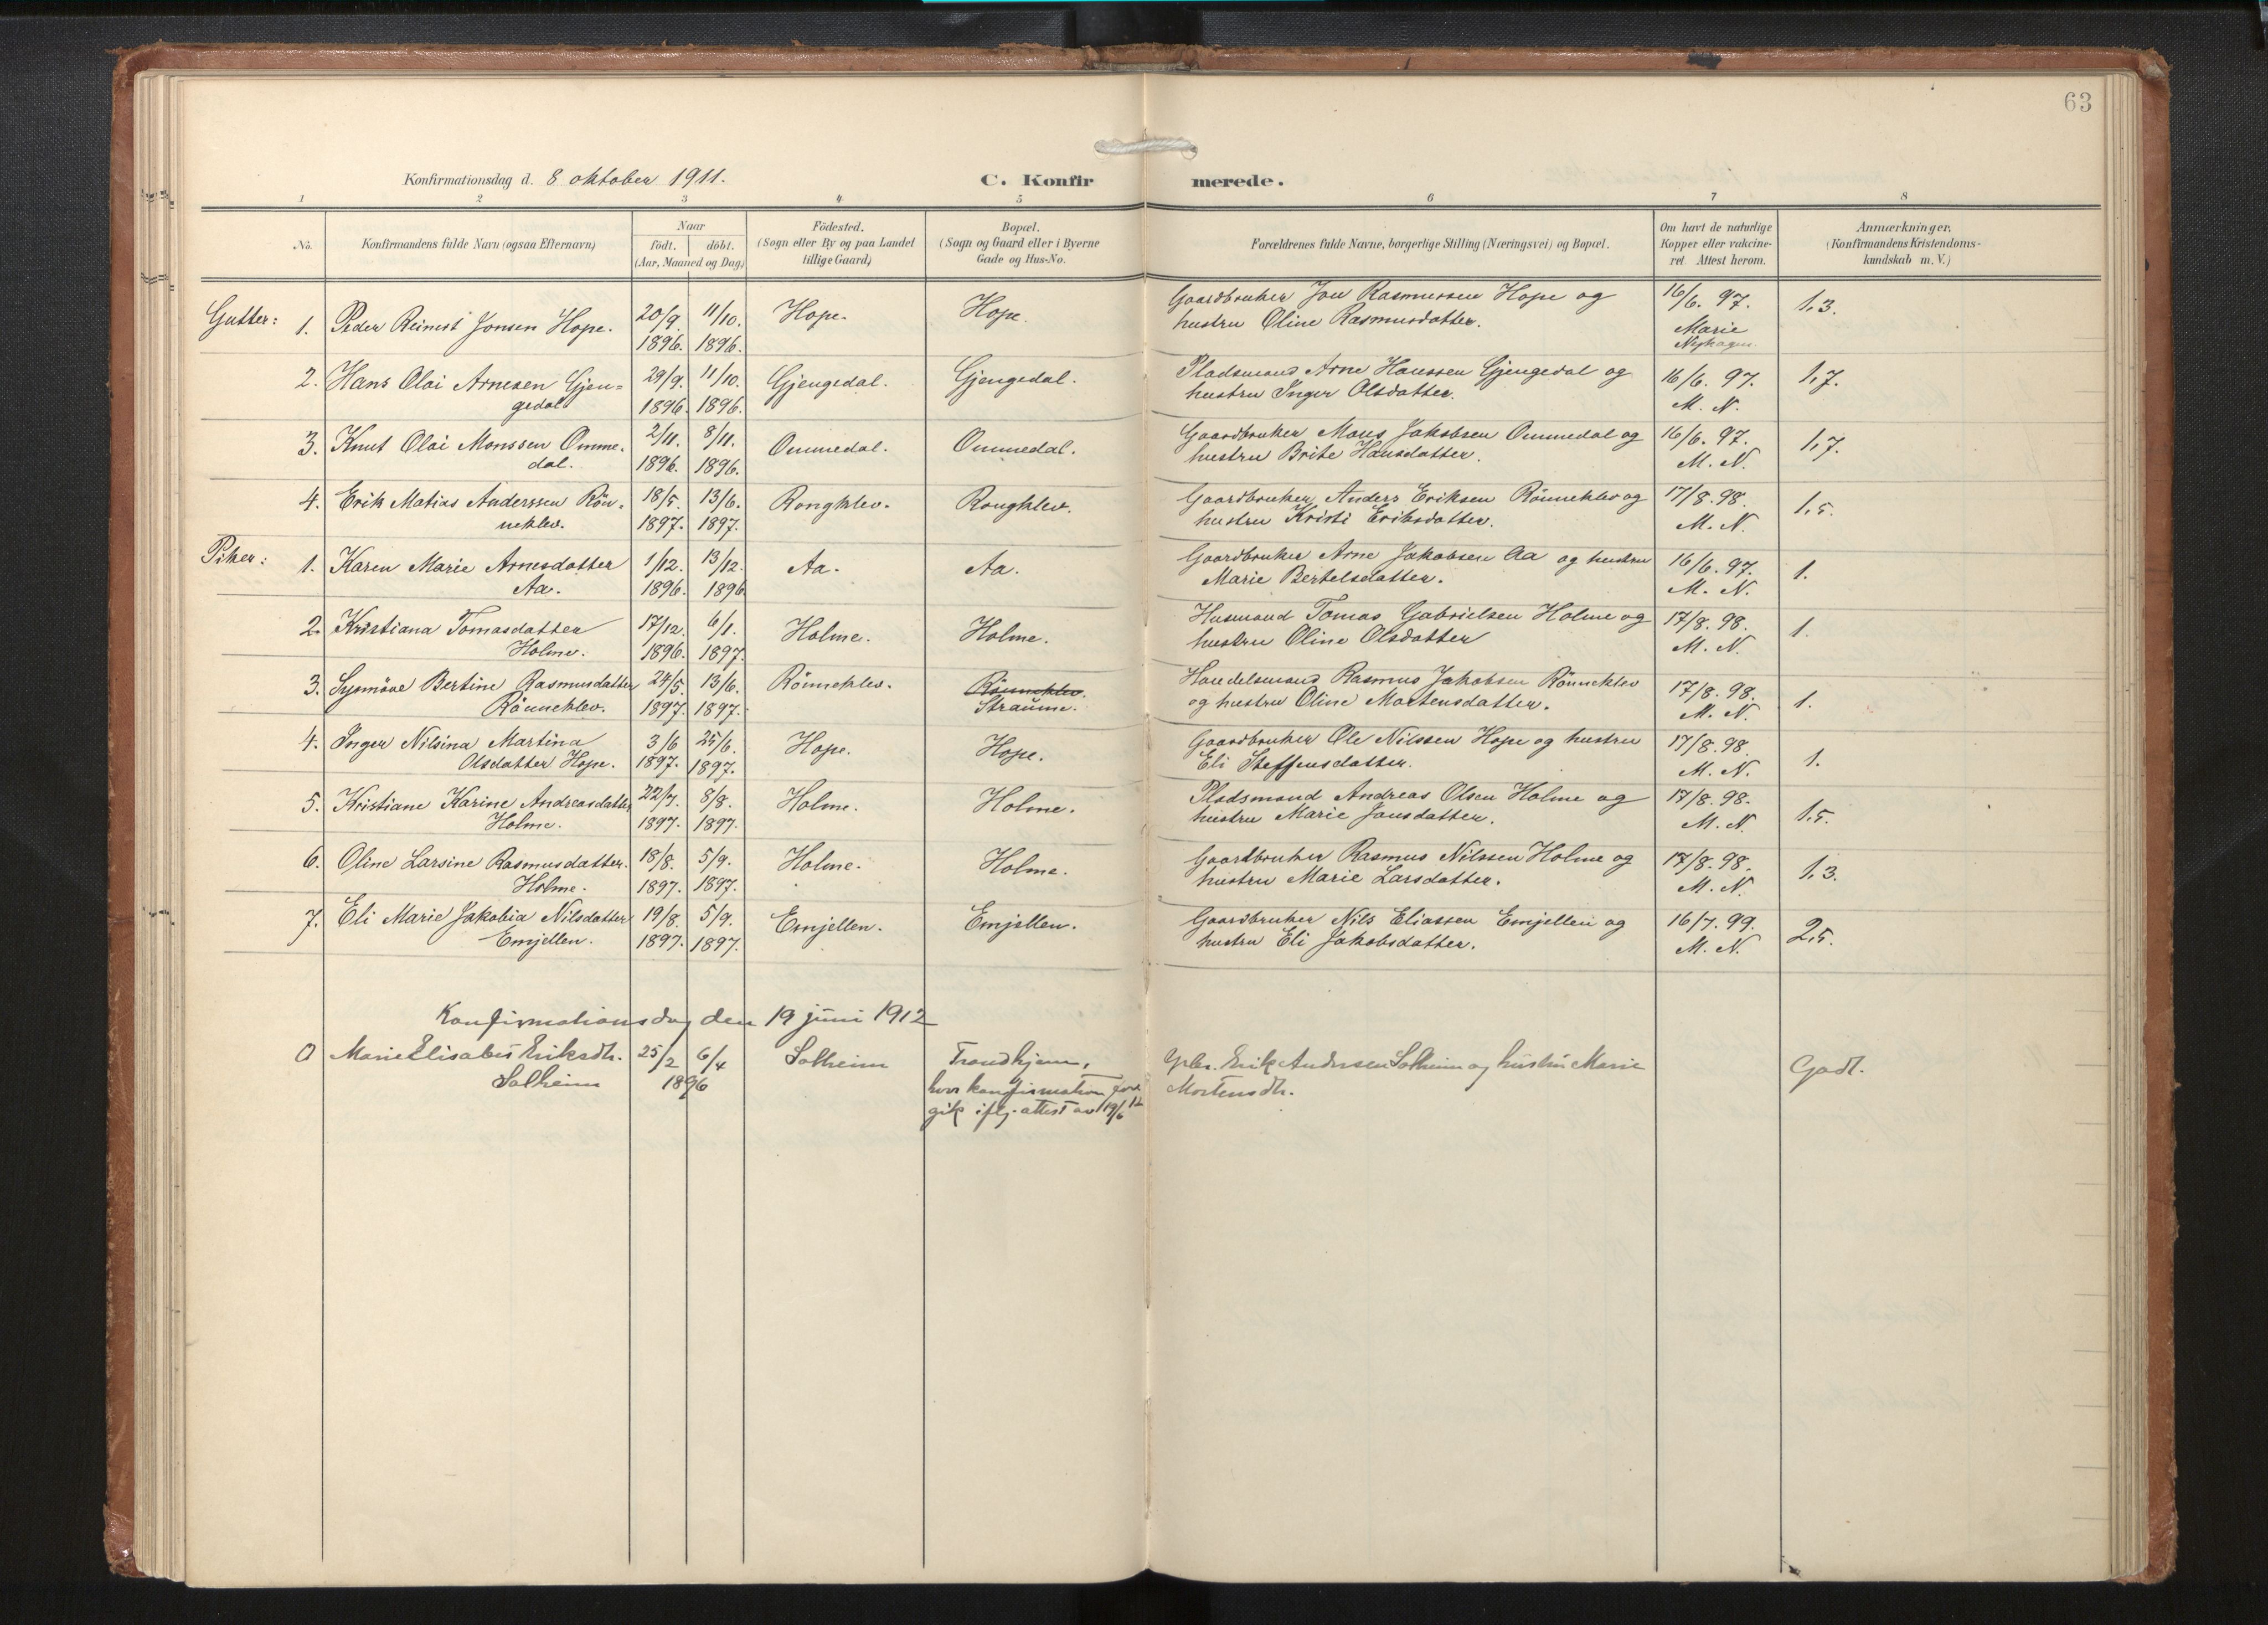 63
Konfirmationsdag d. 8 oktober 1911. C. Konfirmerede.
1 2 3 4 5 6 7 8
No. Konfirmandens fulde Navn (ogsaa Efternavn) Naar födt. döbt. (Aar, Maaned og Dag) Födested. (Sogn eller By og paa Landet tillige Gaard) Bopæl. (Sogn og Gaard eller i Byerne Gade og Hus-No. Forældrenes fulde Navne, borgerlige Stilling (Næringsvei) og Bopæl. Om havt de naturlige Kopper eller vakcineret Attest herom. Anmærkninger. (Konfirmandens Kristendomskundskab m. V.)
Gutter: 1. Peder Reinert Jonsen Hope. 20/9. 11/10. Hope. Hope. Gaardbruker Jon Rasmussen Hope og 16/6. 97. 1,3.
1896. 1896. hustru Oline Rasmusdatter. Marie
Nyhagen.
2. Hans Olai Arnesen Gjen= 29/9. 11/10. Gjengedal. Gjengedal. Pladsmand Arne Hanssen Gjengedal og 16/6. 97. 1,7.
gedal 1896. 1896. hustru Inger Olsdatter. M. N.
3. Knut Olai Monssen Omme- 2/11. 8/11. Ommedal. Ommedal. Gaardbruker Mons Jakobsen Ommedal og 16/6. 97. 1,7.
dal. 1896. 1896. hustru Brite Hansdatter. M. N.
4. Erik Matias Anderssen Rön- 18/5. 13/6. Rongklev. Rongklev. Gaardbruker Anders Eriksen Rönneklev og 17/8. 98. 1,5.
neklev. 1897. 1897. hustru Kristi Eriksdatter. M. N.
Piker: 1. Karen Marie Arnesdatter 1/12. 13/12. Aa. Aa. Gaardbruker Arne Jakobsen Aa og hustru 16/6. 97. 1.
Aa. 1896. 1896 Marie Bertelsdatter. M. N.
2. Kristiana Tomasdatter 17/12. 6/1. Holme. Holme. Husmand Tomas Gabrielsen Holme og 17/8. 98. 1.
Holme. 1896. 1897. hustru Oline Olsdatter M. N.
3. Synnöve Bertine Rasmusdatter 24/5. 13/6. Rönneklev. Rönneklev. Handelsmand Rasmus Jakobsen Rönneklev 17/8. 98. 1.
Rönneklev. 1897. 1897. Straume. og hustru Oline Mortensdatter. M. N.
4. Inger Nilsina Martina 3/6 25/6. Hope. Hope. Gaardbruker Ole Nilssen Hope og hustru 17/8. 98. 1.
Olsdatter Hope. 1897. 1897. Eli Steffensdatter. M. N.
5. Kristiane Karine Andreasdatter 22/7. 8/8. Holme. Holme. Pladsmand Andreas Olsen Holme og 17/8. 98. 1,5.
Holme. 1897. 1897. hustru Marie Jonsdatter. M. N.
6. Oline Larsine Rasmusdatter. 18/8. 5/9. Holme. Holme. Gaardbruker Rasmus Nilssen Holme og 17/8. 98. 1,3.
Holme. 1897. 1897. hustru Marie Larsdatter. M. N.
7. Eli Marie Jakobia Nilsdatter 19/8. 5/9. Emjellen. Emjellen. Gaardbruker Nils Eliassen Emjellen og 16/7. 99. 2,5.
Emjellen. 1897. 1897. hustru Eli Jakobsdatter. M. N.
Konfirmationsdag den 19 juni 1912
0 Marie Elisabet Eriksdtr. 25/2 6/4 Solheim Trondhjem, Gbr. Erik Andersen Solheim og hustru Marie Godt.
Solheim 1896 hvor konfirmation fore Mortensdtr.
gik iflg. attest av 19/6 12